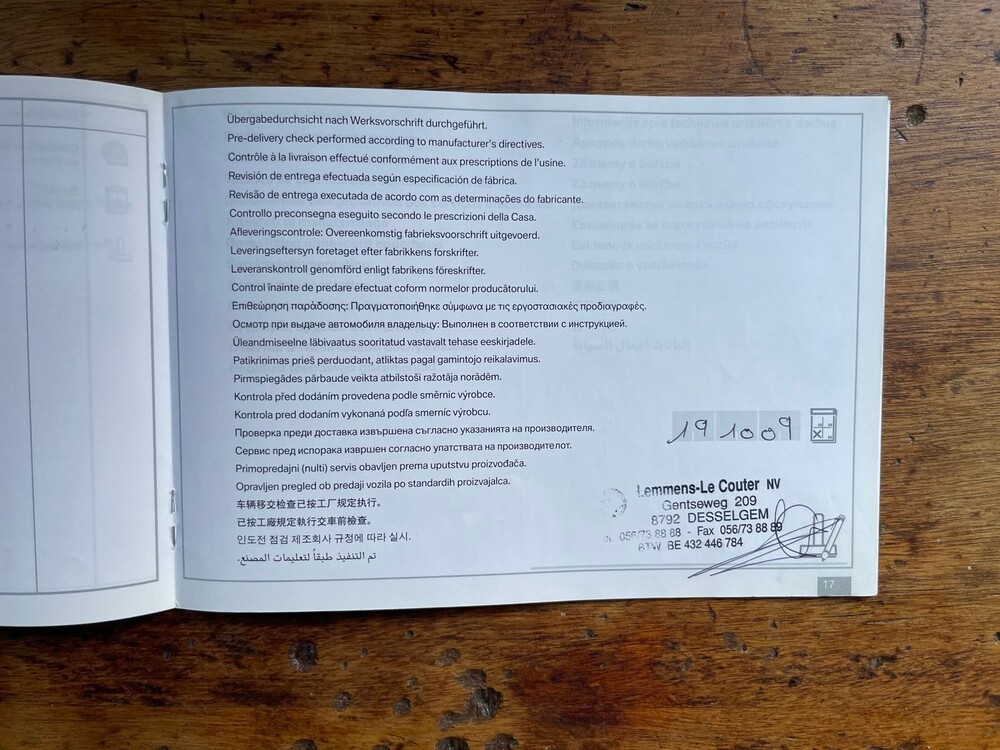 Übergabedurchsicht nach Werksvorschrift durchgeführt.
Pre-delivery check performed according to manufacturer's directives.
Contrôle à la livraison effectué conformément aux prescriptions de l'usine.
Revisión de entrega efectuada según especificación de fábrica.
Revisão de entrega executada de acordo com as determinações do fabricante.
Controllo preconsegna eseguito secondo le prescrizioni della Casa.
Afleveringscontrole: Overeenkomstig fabrieksvoorschrift uitgevoerd.
Leveringseftersyn foretaget efter fabrikkens forskrifter.
Leveranskontroll genomförd enligt fabrikens föreskrifter.
Control înainte de predare efectuat coform normelor producătorului.
Επιθεώρηση παράδοσης: Πραγματοποιήθηκε σύμφωνα με τις εργοστασιακές προδιαγραφές.
Осмотр при выдаче автомобиля владельцу: Выполнен в соответствии с инструкцией.
Üleandmiseelne läbivaatus sooritatud vastavalt tehase eeskirjadele.
Patikrinimas prieš perduodant, atliktas pagal gamintojo reikalavimus.
Pirmspiegādes pārbaude veikta atbilstoši ražotāja norādēm.
Kontrola před dodáním provedena podle směrnic výrobce.
Kontrola pred dodaním vykonaná podľa smerníc výrobcu.
Проверка преди доставка извършена съгласно указанията на производителя.
Сервис пред испорака извршен согласно упатствата на производителот.
Primopredajni (nulti) servis obavljen prema uputstvu proizvođača.
Opravljen pregled ob predaji vozila po standardih proizvajalca.
车辆移交检查已按工厂规定执行。
已按工廠規定執行交車前檢查。
인도전 점검 제조회사 규정에 따라 실시.
تم التنفيذ طبقاً لتعليمات المصنع.
191009
Lemmens-Le Couter NV
Gentseweg 209
8792 DESSELGEM
056/73 88 88 - Fax 056/73 88 89
BTW BE 432 446 784
17